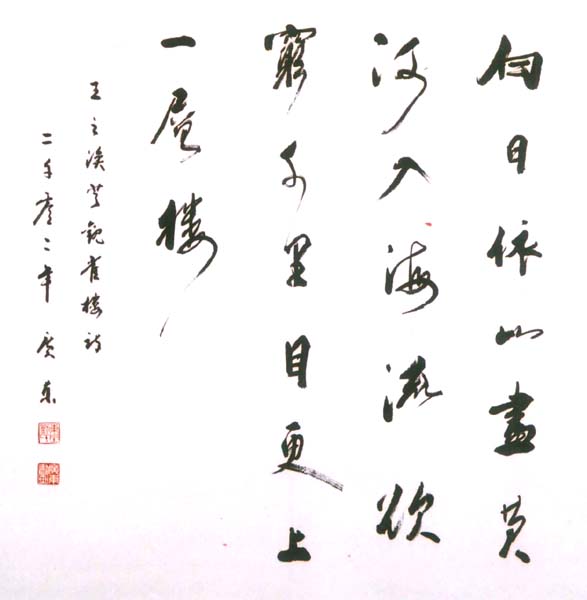 白日依山盡黃
河入海流欲
窮千里目更上
一層樓
王之渙登鸛雀樓詩
二千零二年 廣東